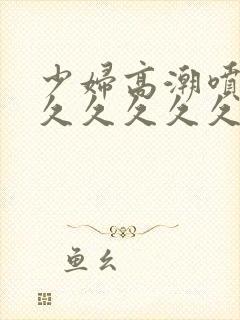 少婦高潮噴
久久久久久
鱼幺